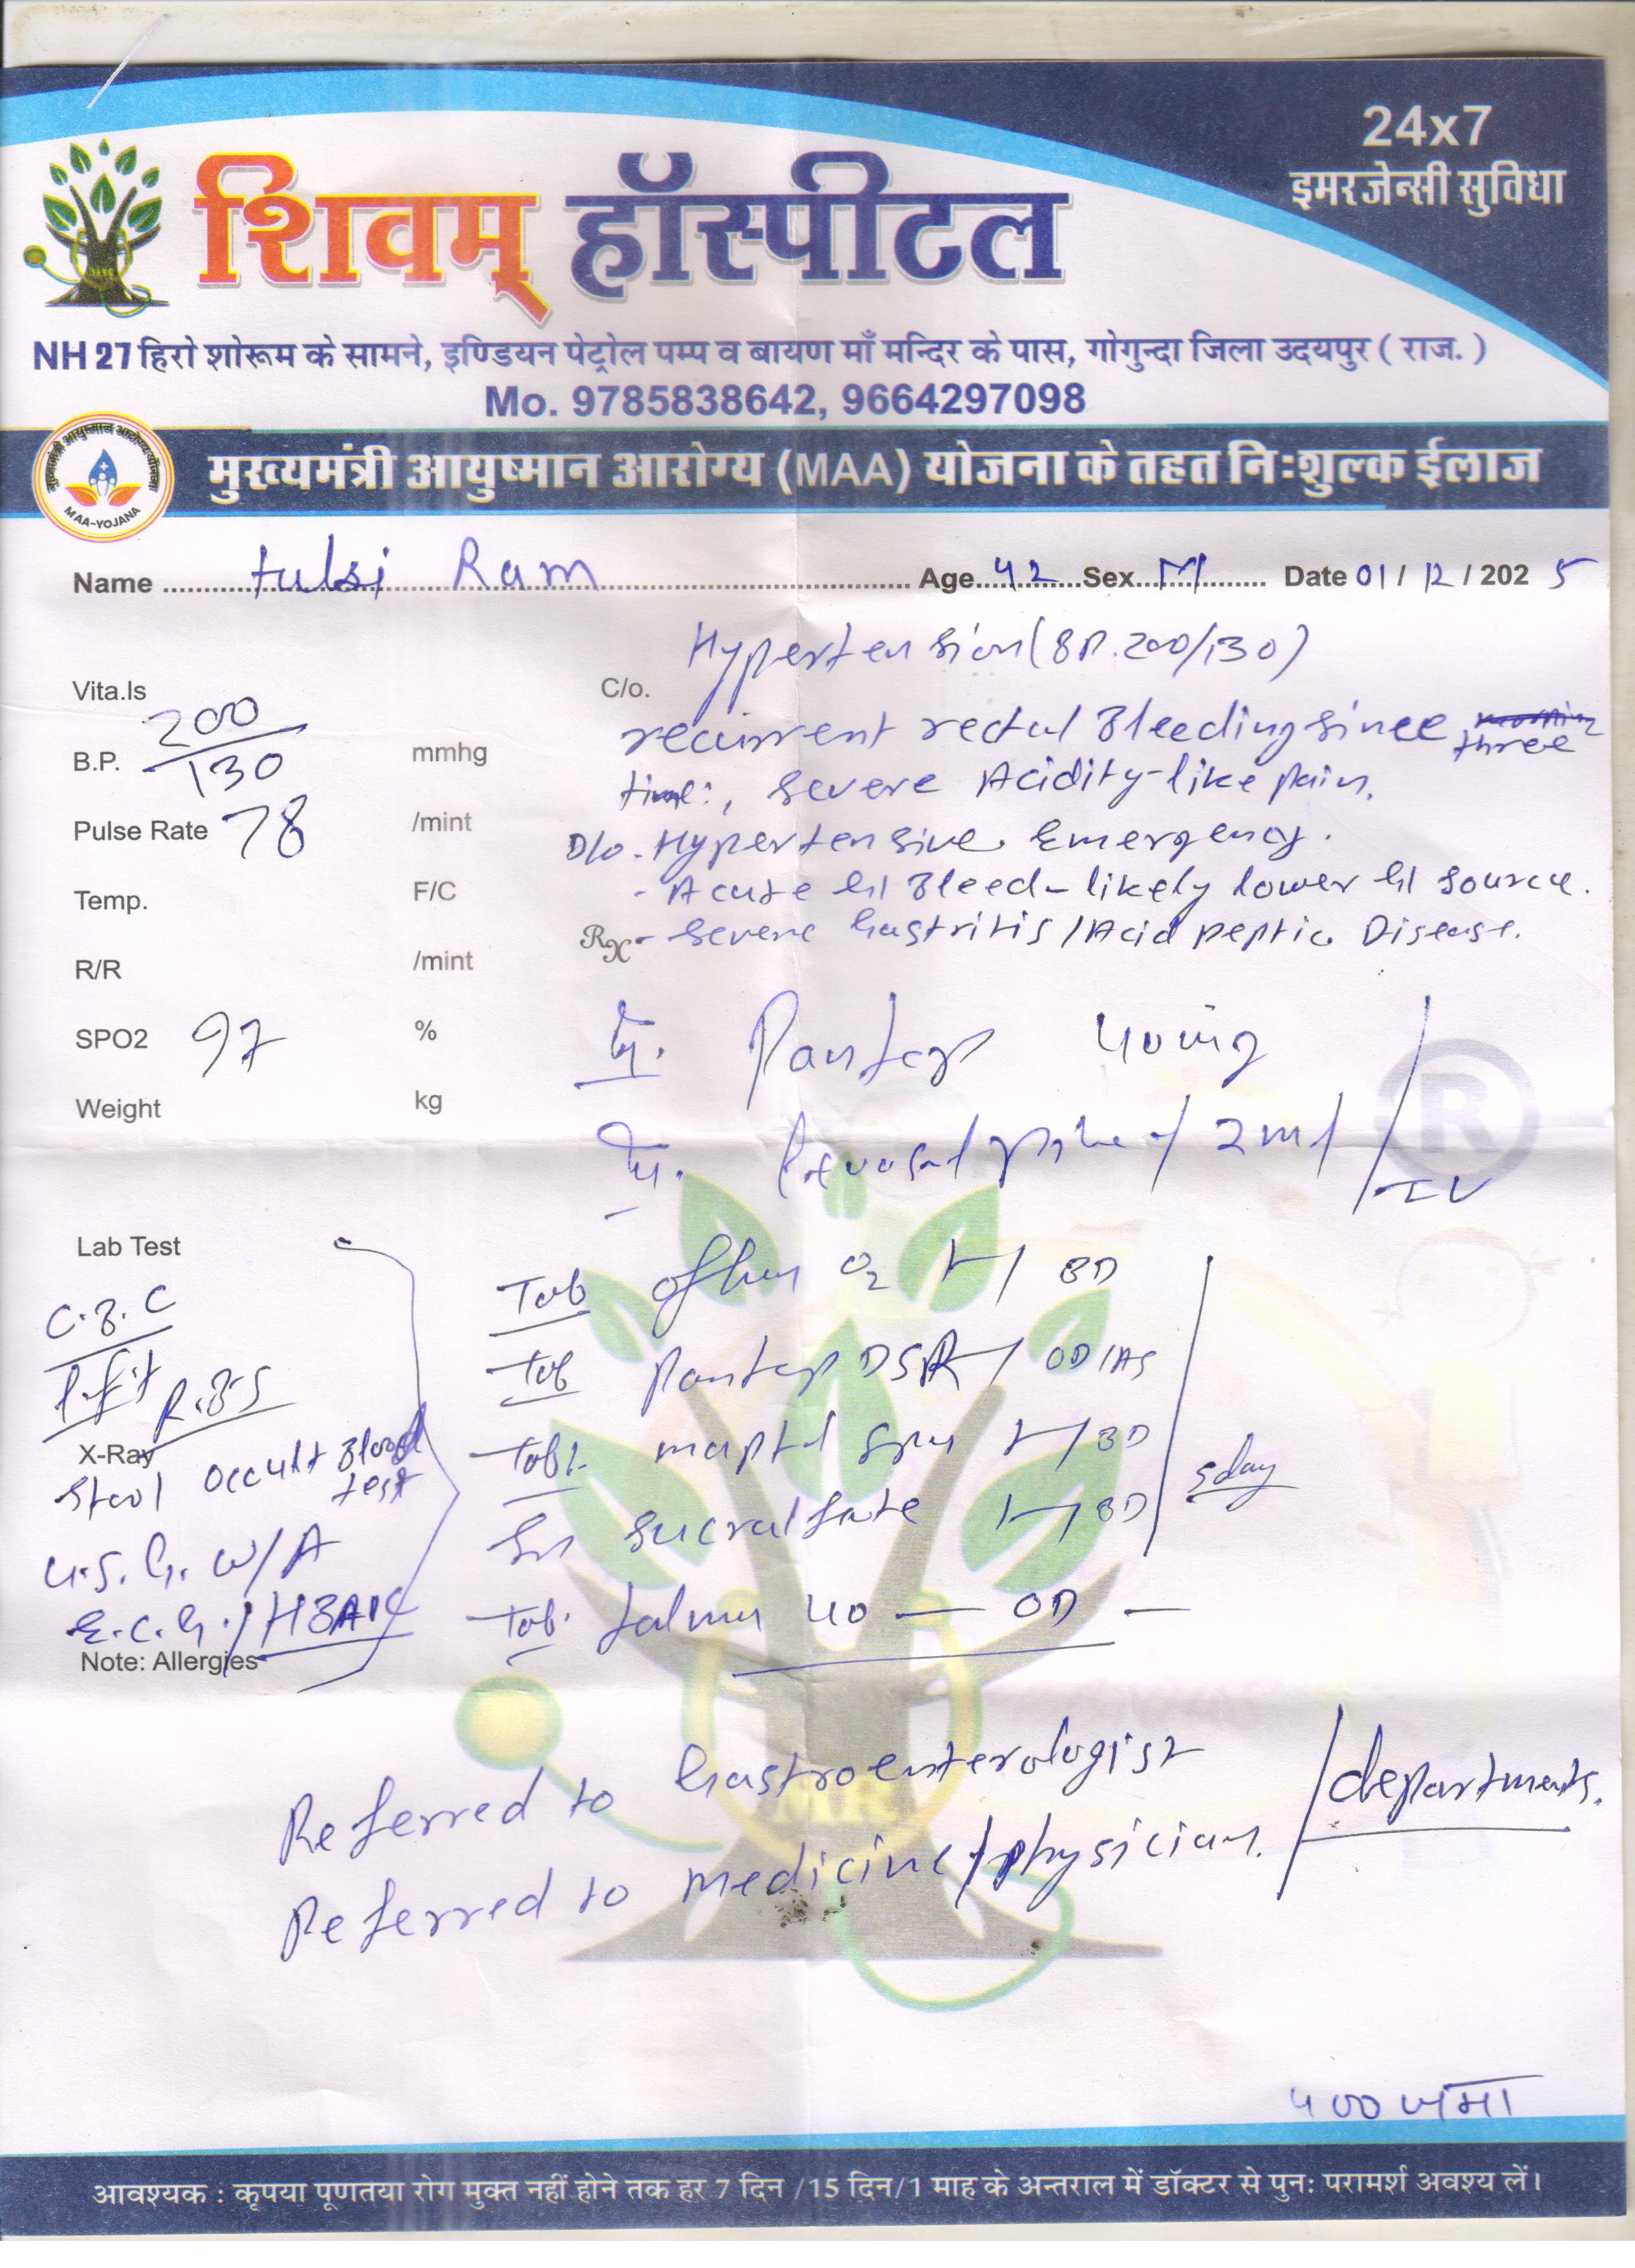 24x7
इमरजेन्सी सुविधा
शिवम् हॉस्पीटल
NH 27 हिरो शोरूम के सामने, इण्डियन पेट्रोल पम्प व बायण माँ मन्दिर के पास, गोगुन्दा जिला उदयपुर ( राज. )
Mo. 9785838642, 9664297098
मुख्यमंत्री आयुष्मान आरोग्य (MAA) योजना के तहत निःशुल्क ईलाज
MAA-YOJANA
Name tulsi Ram Age 42 Sex M Date 01 / 12 / 2025
Hypertension (BP. 200/130)
Vita.ls C/o.
recurrent rectal Bleeding since three
time:, severe Acidity-like pain.
B.P. 200/130 mmhg
Pulse Rate 78 /mint
D/o. Hypertensive Emergency.
Temp. F/C
- Acute GI Bleed - likely lower GI source.
Rx - severe Gastritis / Acid peptic Disease.
R/R /mint
SPO2 97 %
Pantop 40mg
Weight kg
2ml / IV
Lab Test
C.B.C
R.B.S
X-Ray
Stool occult Blood test
U.S.G. W/A
E.C.G. / HBA1C
Note: Allergies
Tab O2 BD
Tab Pantop DSR OD/AS
Tab. BD
sucralfate BD
5day
Tab. 40 — OD —
Referred to Gastroenterologist
Referred to medicine / physician. / departments.
400 जमा
आवश्यक : कृपया पूणतया रोग मुक्त नहीं होने तक हर 7 दिन /15 दिन/1 माह के अन्तराल में डॉक्टर से पुनः परामर्श अवश्य लें।